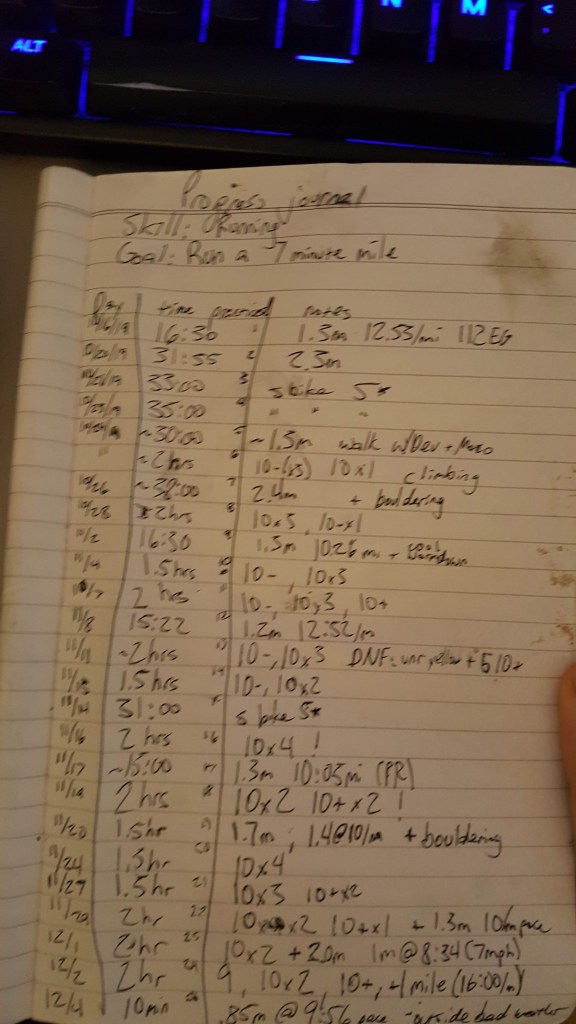 ALT
N
M
<
Progress journal
Skill: Running
Goal: Run a 7 minute mile
Day time practiced notes
10/16/19 16:30 1 1.3m 12.53/mi 112EG
10/20/19 31:55 2 2.3m
33:00 3 s bike 5*
35:00 4 " " "
~30:00 5 ~1.5m walk w/Dev +
" ~2hrs 6 10-(x3) 10x1 climbing
10/26 7 2.4m + bouldering
10/28 2hrs 8 10x5, 10-x1
11/2 16:30 9 1.5m 10:26 mi +
11/4 1.5hrs 10 10-, 10x3
2 hrs 11 10-, 10x3, 10+
11/8 15:22 12 1.2m 12:52/m
11/11 ~2hrs 13 10-, 10x3 DNF: yellow + 5 10+
1.5hrs 14 10-, 10x2
31:00 s bike 5*
11/16 2 hrs 16 10x4 !
11/17 ~15:00 17 1.3m 10:05mi (PR)
11/19 2hrs 10x2 10+x2 !
11/20 1.5hr 19 1.7m, 1.4@10/m + bouldering
11/24 1.5hr 20 10x4
11/27 1.5hr 21 10x3 10+x2
11/29 2hr 22 x2 10+x1 + 1.3m 10/m pace
12/1 2hr 10x2 + 2.0m 1m@8:34 (7mph)
12/2 2hr 9, 10x2, 10+, +1 mile (16:00/m)
12/4 10min .85m @ 9:56 pace - outside bad weather